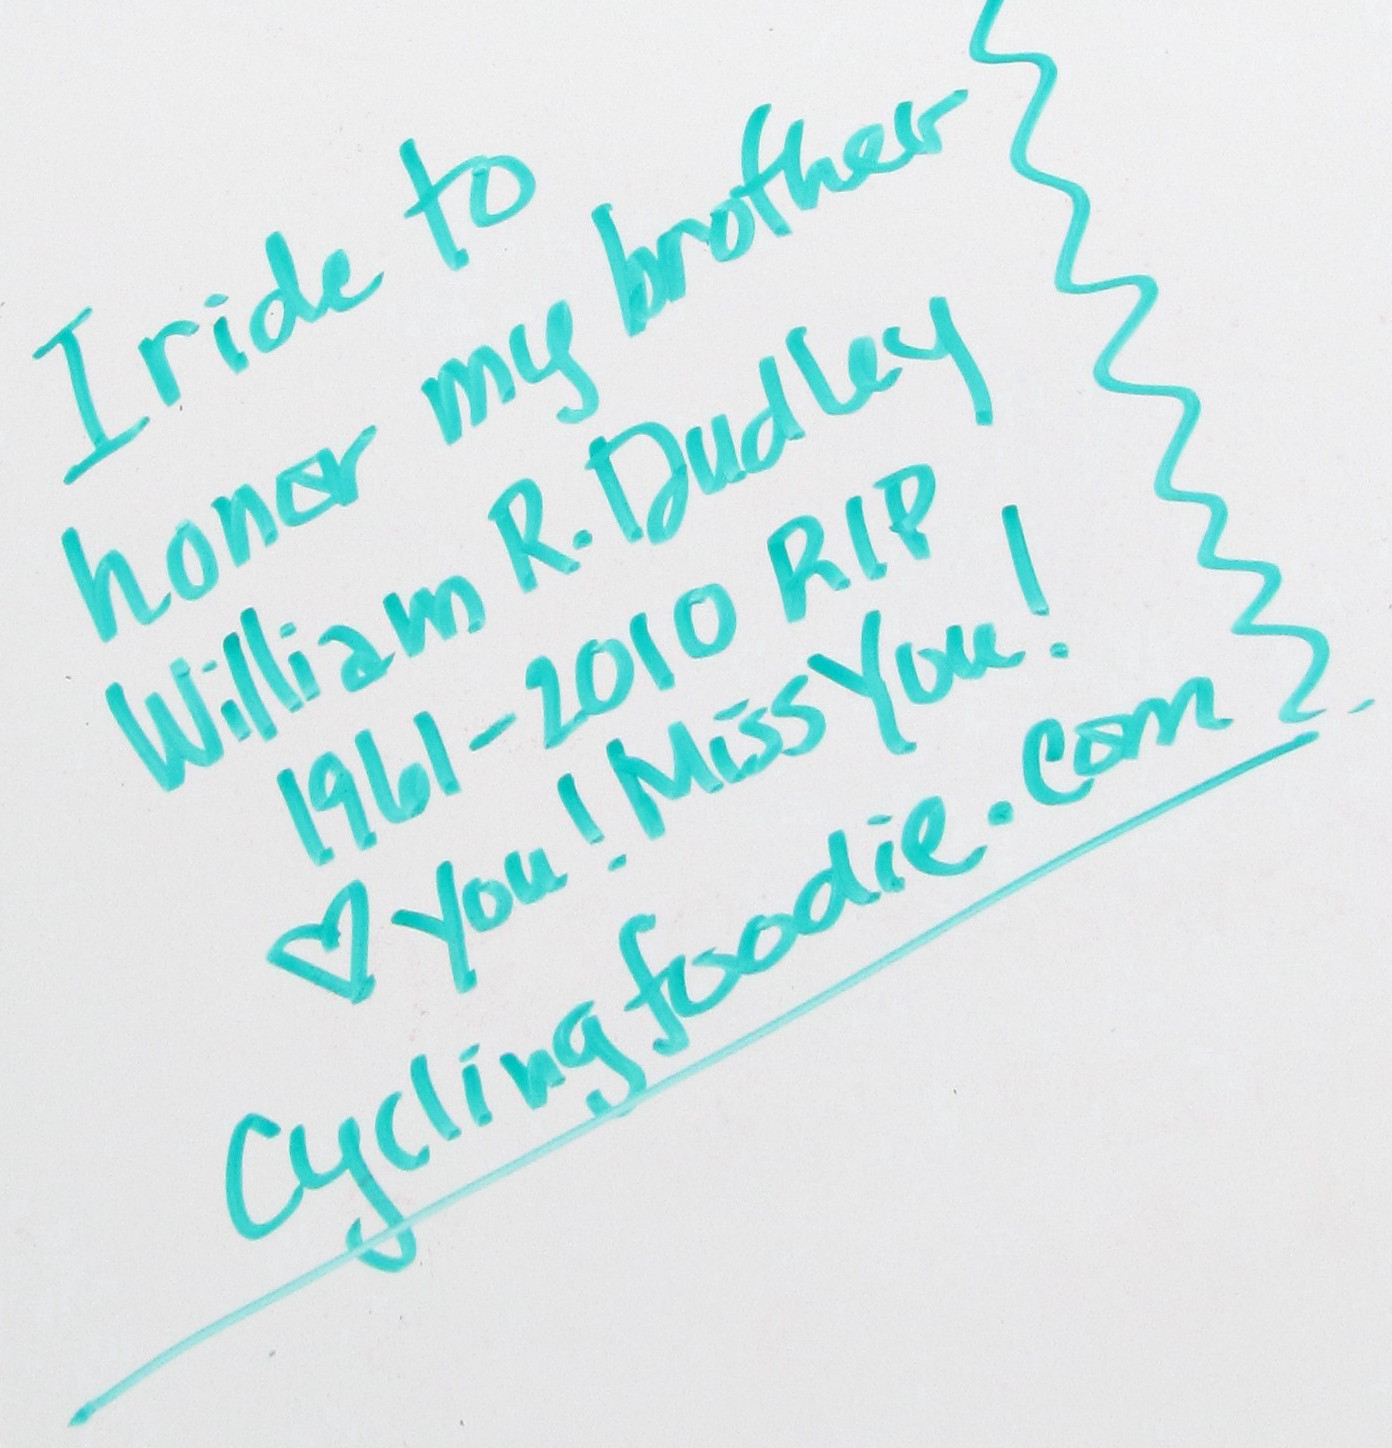 I ride to
honor my brother
William R. Dudley
1961-2010 RIP
♡ you! Miss You!
Cyclingfoodie.com